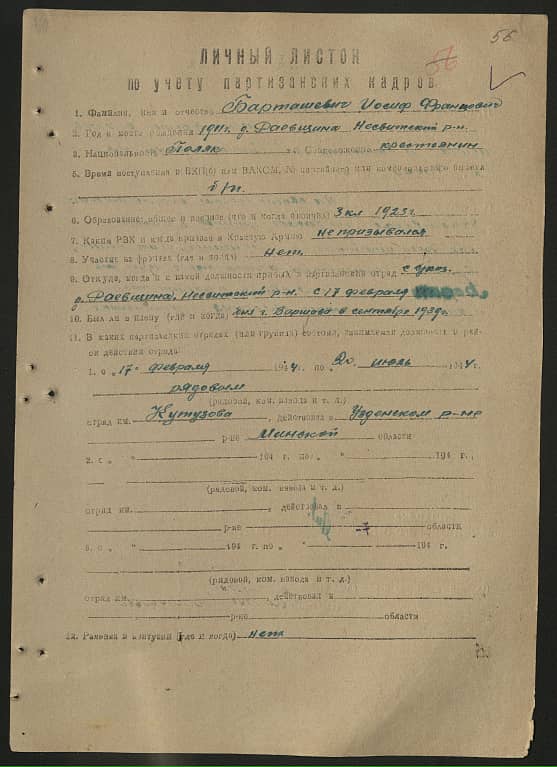 56
56
ЛИЧНЫЙ ЛИСТОК
по учету партизанских кадров
1. Фамилия, имя и отчество Барташевич Иосиф Францович
2. Год и место рождения 1911г. д. Раевщина Несвитский р-н.
3. Национальность Поляк 4. Соцположение крестьянин
5. Время поступления в ВКП(б) или ВЛКСМ, № партийного или комсомольского билета
б/п.
6. Образование: общее и военное (что и когда окончил) 3 кл 1923г.
7. Каким РВК и когда призван в Красную Армию не призывался
8. Участие на фронтах (где и когда) нет.
9. Откуда, когда и с какой должности прибыл в партизанский отряд с
д. Раевщина, Несвитский р-н. с 17 февраля
10. Был ли в плену (где и когда) был г. Варшава в сентябре 1939г.
11. В каких партизанских отрядах (или группах) состоял, занимаемая должность и рай-
он действия отряда
1. с „17" февраля 1944 г. по „20" июль 1944 г.
рядовым
(рядовой, ком. взвода и т. д.)
отряд им. Кутузова, действовал в Узденском р-не
р-не Минской области
2. с „ " 194 г. по „ " 194 г.
(рядовой, ком. взвода и т. д.)
отряд им. , действовал в
р-не области
3. с „ " 194 г. по „ " 194 г.
(рядовой, ком. взвода и т. д.)
отряд им. , действовал в
р-не области
12. Ранения и контузии (где и когда) нет